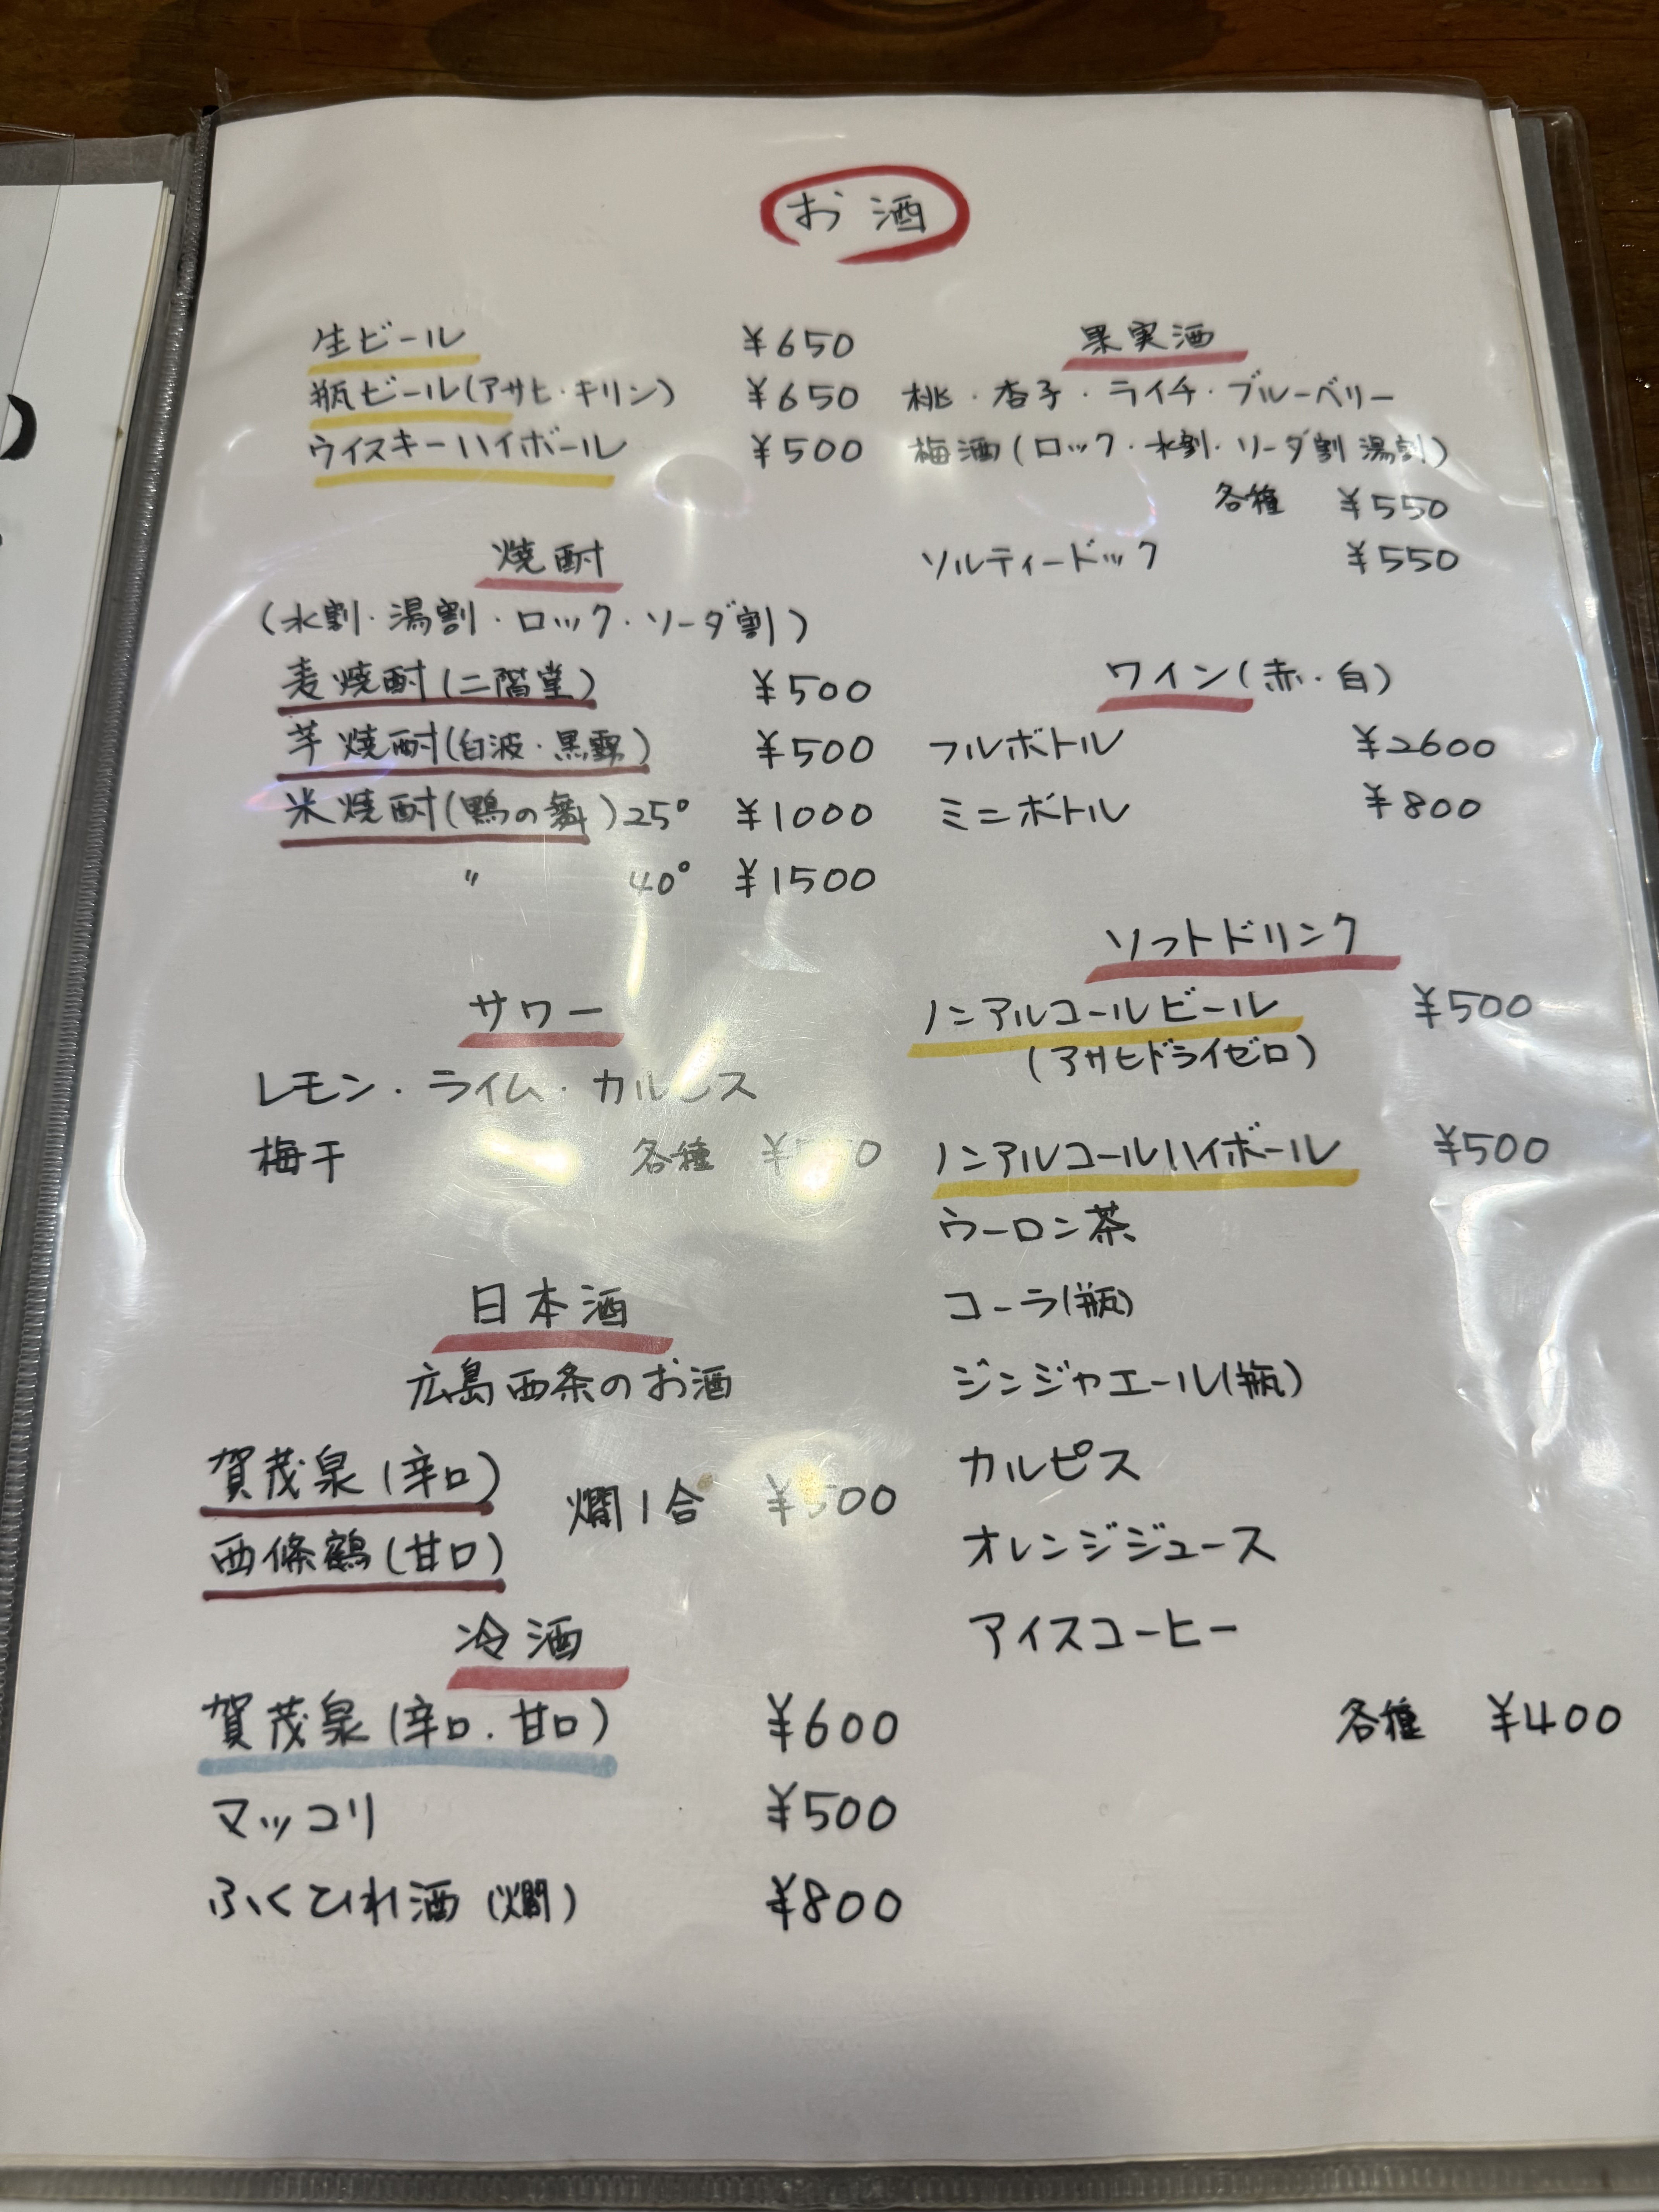 お酒
生ビール ¥650
瓶ビール(アサヒ・キリン) ¥650
ウイスキーハイボール ¥500
焼酎
(水割・湯割・ロック・ソーダ割)
麦焼酎(二階堂) ¥500
芋焼酎(白波・黒霧) ¥500
米焼酎(鴨の舞)25° ¥1000
〃 40° ¥1500
サワー
レモン・ライム・カルピス
梅干 各種
日本酒
広島西条のお酒
賀茂泉(辛口)
燗1合 ¥500
西條鶴(甘口)
冷酒
賀茂泉(辛口.甘口) ¥600
マッコリ ¥500
ふくひれ酒(燗) ¥800
果実酒
桃・杏子・ライチ・ブルーベリー
梅酒(ロック・水割・ソーダ割 湯割)
各種 ¥550
ソルティードック ¥550
ワイン(赤・白)
フルボトル ¥2600
ミニボトル ¥800
ソフトドリンク
ノンアルコールビール ¥500
(アサヒドライゼロ)
ノンアルコールハイボール ¥500
ウーロン茶
コーラ(瓶)
ジンジャエール(瓶)
カルピス
オレンジジュース
アイスコーヒー
各種 ¥400